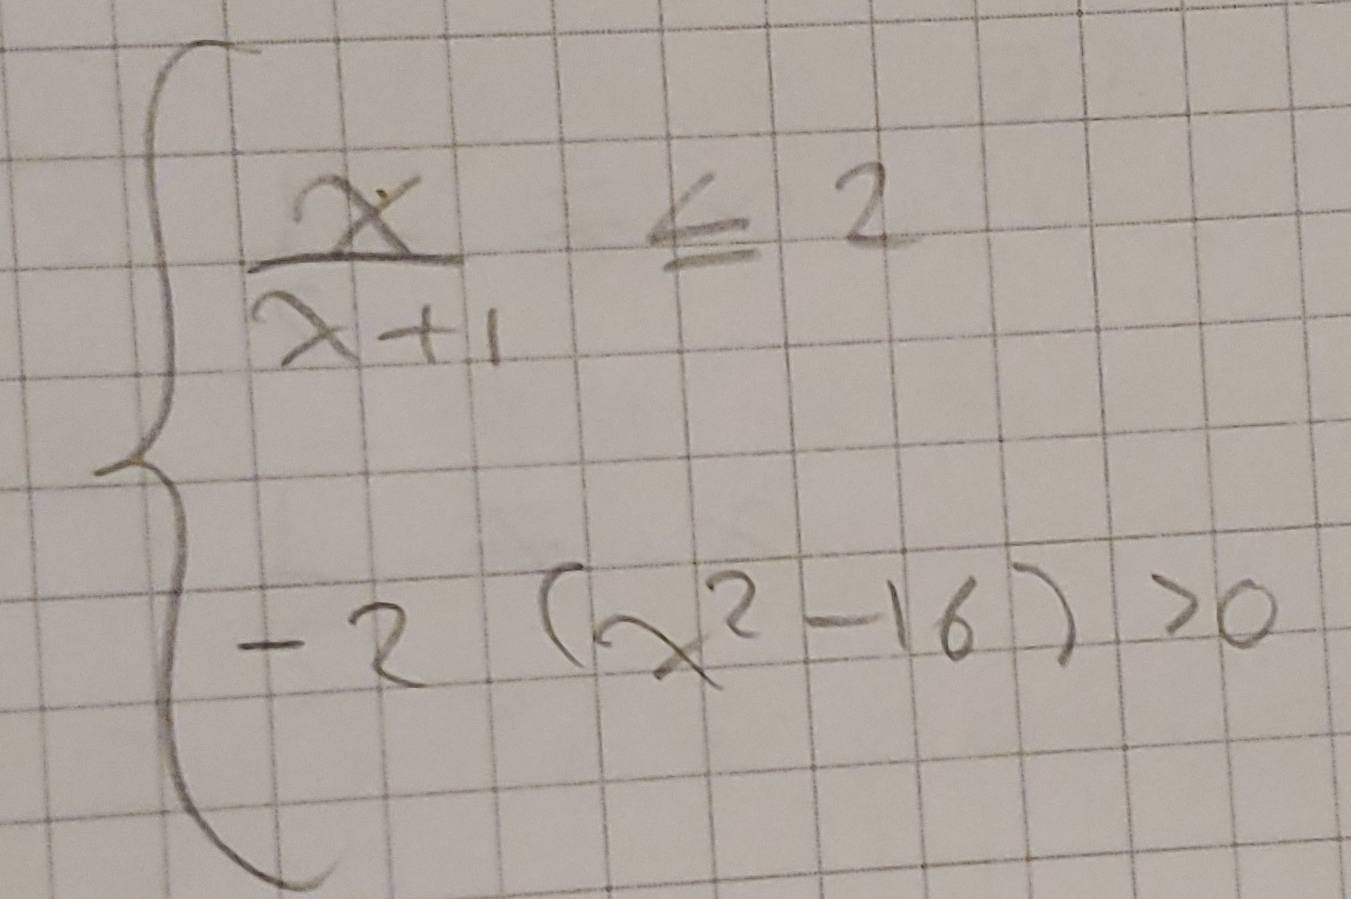 x
x+1 ≤ 2
-2 (x² -16) >0